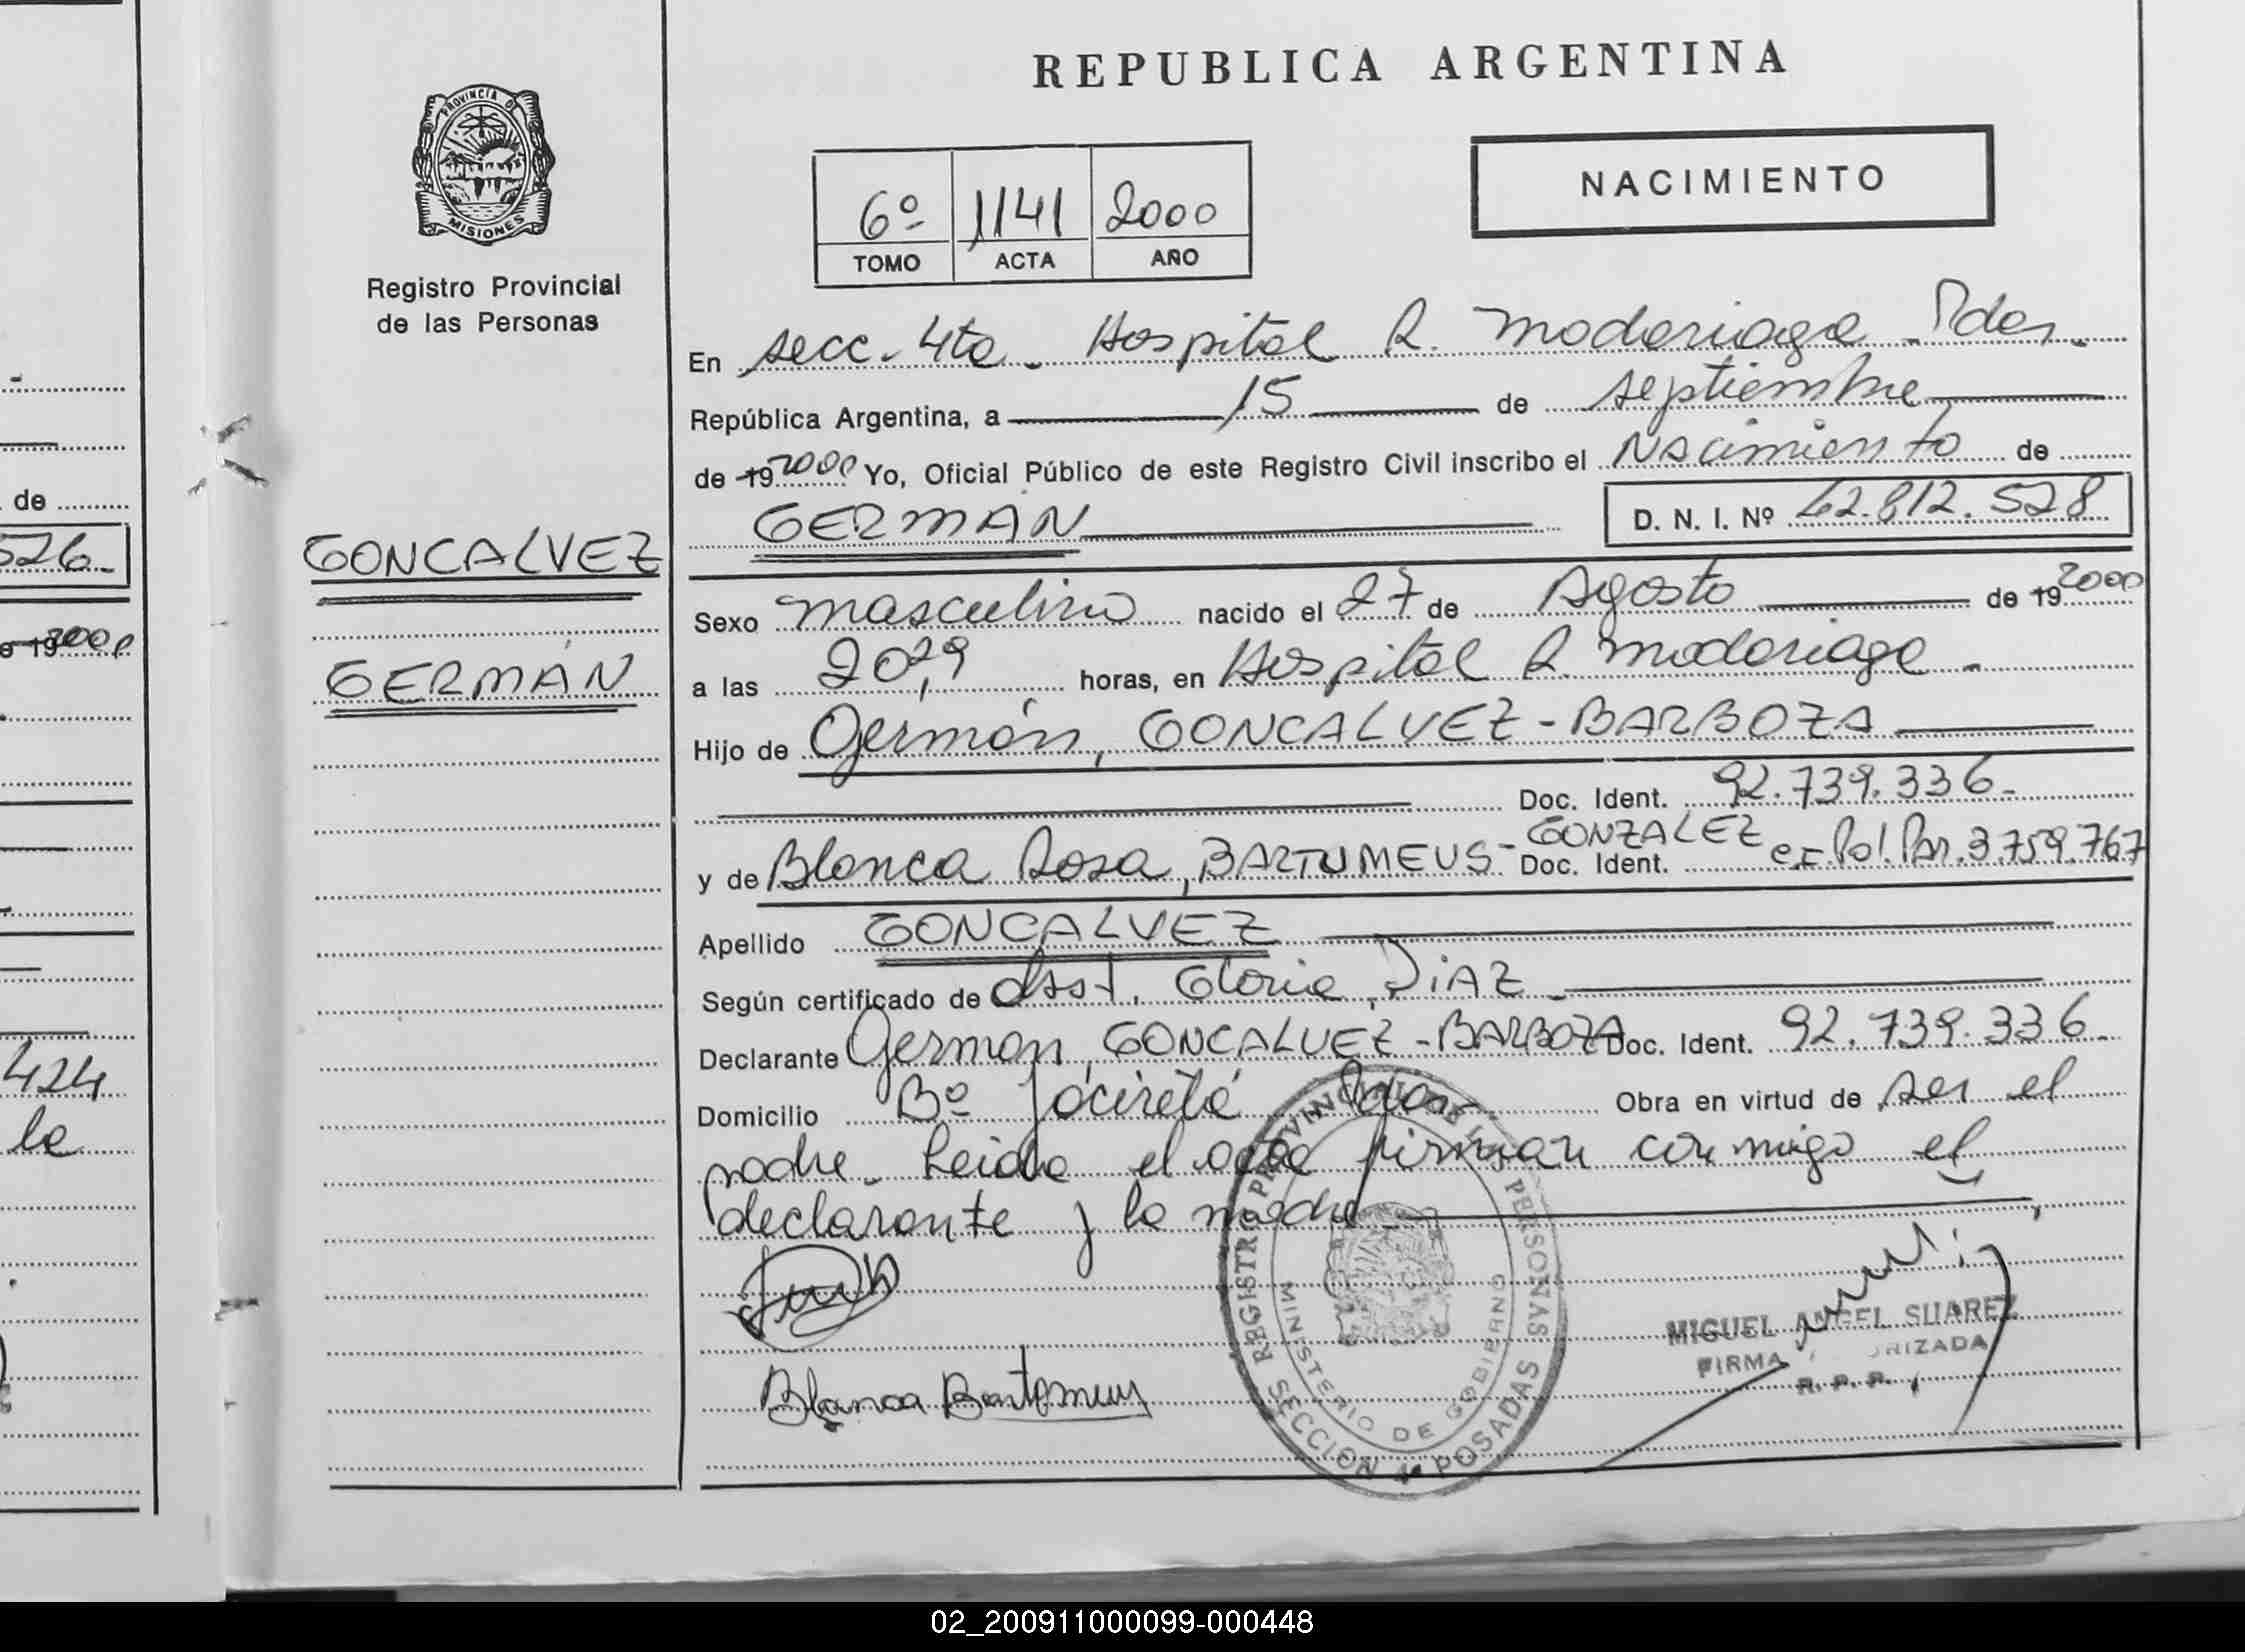 REPUBLICA ARGENTINA
PROVINCIA D
MISIONES
Registro Provincial
de las Personas
NACIMIENTO
6º 1141 2000
TOMO ACTA AÑO
En secc. 4ta. Hospital R. Madariaga. Pdas.
República Argentina, a 15 de septiembre
de 19 2000 Yo, Oficial Público de este Registro Civil inscribo el Nacimiento de
GERMÁN D. N. I. Nº 42.812.528
GONCALVEZ
GERMÁN
Sexo masculino nacido el 27 de Agosto de 19 2000
a las 20,29 horas, en Hospital R. Madariaga.
Hijo de Germán, GONCALVEZ-BARBOZA
Doc. Ident. 92.739.336.
y de Blanca Rosa, BARTUMEUS-GONZALEZ Doc. Ident. Pol. Par. 3.759.767
Apellido GONCALVEZ
Según certificado de Gloria DIAZ
Declarante German, GONCALVEZ-BARBOZA Doc. Ident. 92.739.336.
Domicilio Bº Pdas. Obra en virtud de ser el
padre. Leida el acta firman conmigo el
declarante y la madre
Blanca
REGISTRO PROVINCIAL DE LAS PERSONAS
MINISTERIO DE GOBIERNO
SECCION 4ª POSADAS
MIGUEL ANGEL SUAREZ
FIRMA
R. P. P.
de
526.
19 2000
424
la
02_200911000099-000448